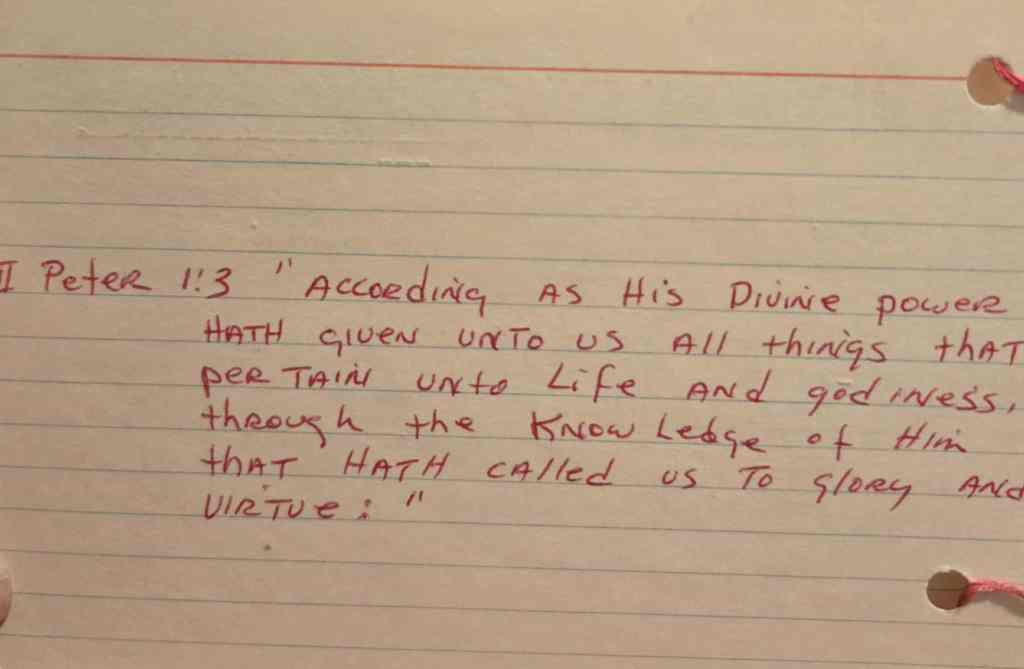 II Peter 1:3 "According as His Divine power
HATH given unto us All things that
per tain unto Life And god iness,
through the Know Ledge of Him
that HATH called us To glory And
VIRTUe: "